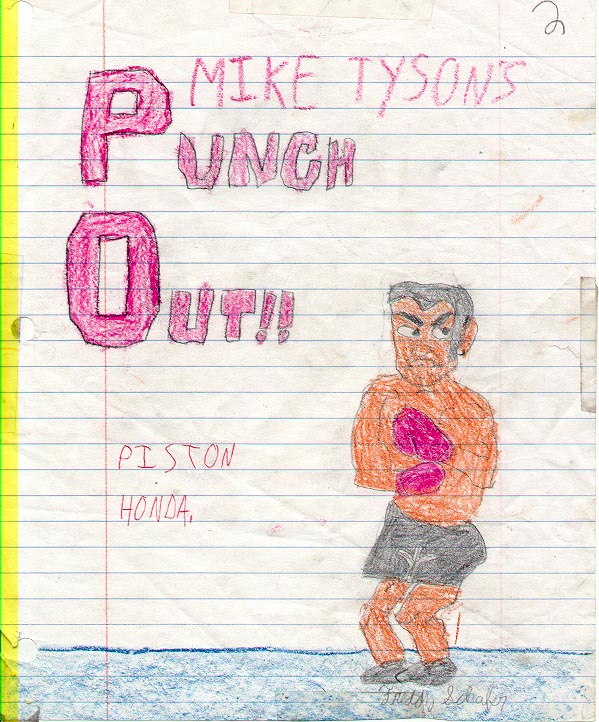 2
MIKE TYSON'S
PUNCH
OUT!!
PISTON
HONDA.
Freddy